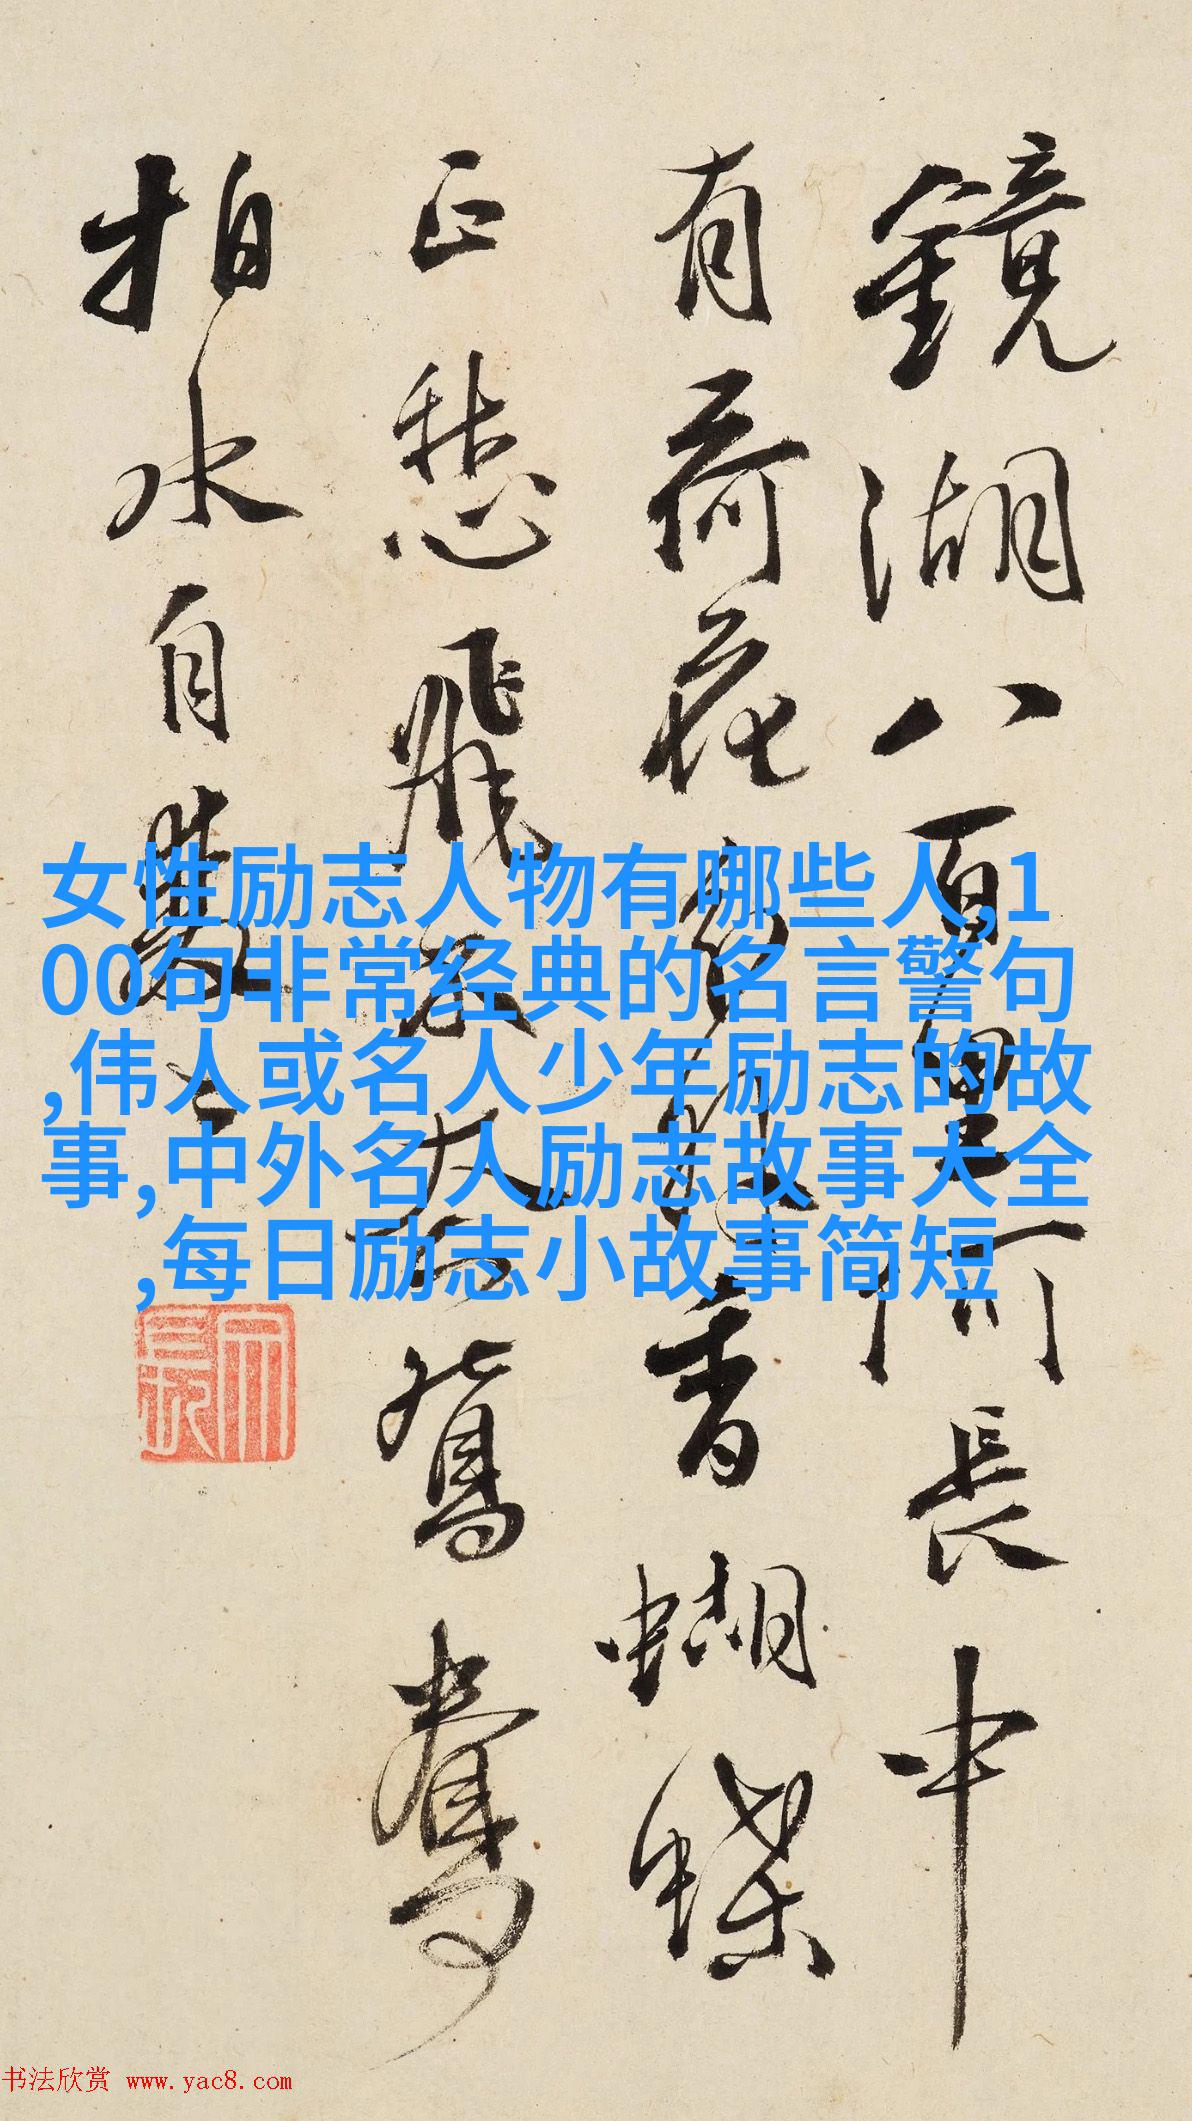 鏡湖八百里何長中
有荷花分外香蝴蝶
正愁飛不過鴛鴦
拍水自雙〻
女性励志人物有哪些人,1
00句非常经典的名言警句
,伟人或名人少年励志的故
事,中外名人励志故事大全
,每日励志小故事简短
书法欣赏 www.yac8.com